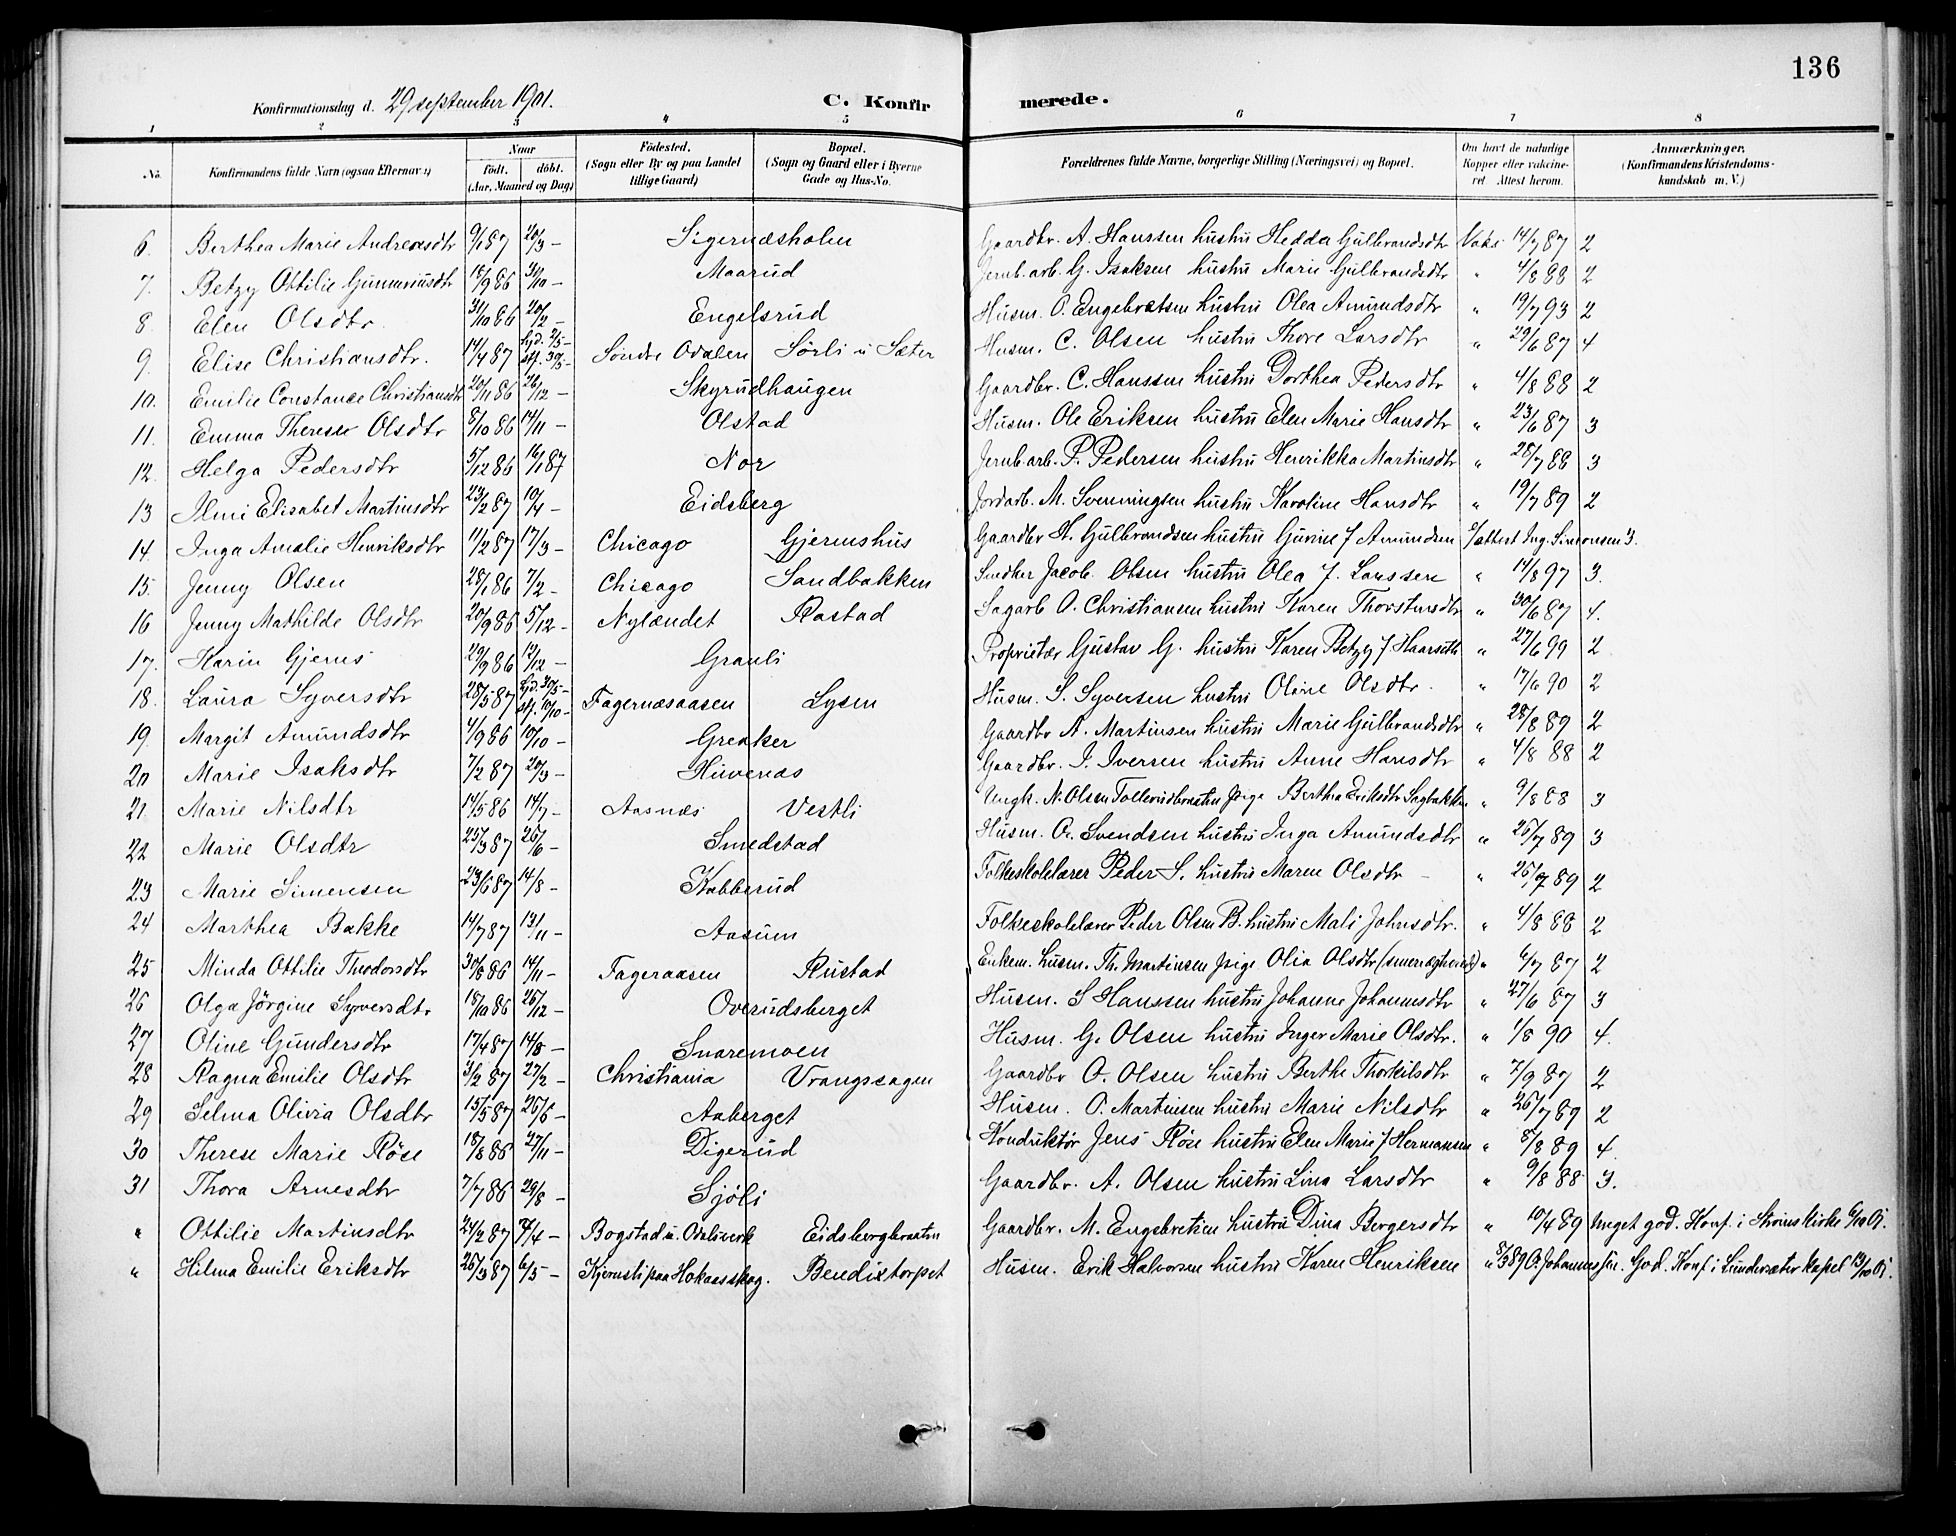 136
Konfirmationsdag d. 29 september 1901. C. Konfirmerede.
1 2 3 4 5 6 7 8
No. Konfirmandens fulde Navn (ogsaa Efternavn) Naar født. døbt. (Aar, Maaned og Dag) Fødested. (Sogn eller By og paa Landet tillige Gaard) Bopæl. (Sogn og Gaard eller i Byerne Gade og Hus-No. Forældrenes fulde Navne, borgerlige Stilling (Næringsvei) og Bopæl. Om havt de naturlige Kopper eller vaccineret. Attest herom. Anmærkninger. (Konfirmandens Kristendomskundskab m. V.)
6. Berthea Marie Andreasdtr 9/1 87 20/3 – Sigernæsholen Gaardbr. A. Hanssen hustru Hedda Gulbrandsdtr Vaks 14/7 87 2
7. Betzy Ottilie Gunneriusdtr 18/9 86 31/10 – Maarud Jernb.arb. G. Isaksen hustru Marie Gulbrandsdtr " 4/8 88 2
8. Elen Olsdtr. 31/10 86 20/2 – Engelsrud Husm. O. Engebretsen hustru Olea Amundsdtr " 19/7 93 2
9. Elise Christiansdtr. 14/4 87 hjd. 2/5 – stf. 30/5 – Søndre Odalen Sørli u Sæter Husm. C. Olsen hustru Thore Larsdtr " 29/6 87 4
10. Emilie Constance Christiansdtr 20/11 86 26/12 – Skyrudhaugen Gaardbr. C. Hanssen hustru Dorthea Pedersdtr " 4/8 88 2
11. Emma Therese Olsdtr 8/10 86 14/11 – Olstad Husm. Ole Eriksen hustru Elen Marie Hansdtr " 23/6 87 3
12. Helga Pedersdtr 5/12 86 16/1 87 Nor Jernb.arb. P. Pedersen hustru Henrikka Martinsdtr " 28/7 88 3
13 Ilmi Elisabet Martinsdtr 23/2 87 10/4 – Eidsberg Jordarb. M. Svenningsen hustru Karoline Hansdtr " 19/7 89 2
14. Inga Amalie Henriksdtr 11/2 87 17/3 – Chicago Gjermshus Gaardbr H. Gulbrandsen hustru Gurine f Amundsen Attest Ing. Simonsen 3.
15. Jenny Olsen 28/1 86 7/2 – Chicago Sandbakken Snedker Jacob Olsen hustru Olea f. Larssen " 14/8 97 3.
16 Jenny Mathilde Olsdtr 20/9 86 5/12 – Nylændet Rastad Sagarb O. Christiansen hustru Karen Thorstensdtr " 30/6 87 4.
17. Karin Gjems 29/9 86 12/12 – Granli Proprietær Gustav G. hustru Karen Betzy f Haarseth " 27/6 99 2
18. Laura Syversdtr 28/5 87 hjd. 30/5 – stf. 10/10 – Fagernæsaasen Lysen Husm. S. Syversen hustru Oline Olsdtr. " 17/6 90 2
19. Margit Amundsdtr 4/9 86 10/10 – Greaker Gaardbr A. Martinsen hustru Marie Gulbrandsdtr " 28/8 89 2
20 Marie Isaksdtr 7/2 87 20/3 – Huvenæs Gaardbr. I. Iversen hustru Anne Hansdtr " 4/8 88 2
21. Marie Nilsdtr 14/5 86 14/7 – Aasnæs Vestli Ungk. N. Olsen Tollerudbraaten pige Berthea Eriksdtr Sagbakken " 9/8 88 3
22 Marie Olsdtr 25/3 87 26/6 – Smedstad Husm. O. Svendsen hustru Inga Amundsdtr " 26/7 89 3
23 Marie Simensen 23/6 87 14/8 – Kabberud Folkeskolelærer Peder S. hustru Maren Olsdtr – " 26/7 89 2
24 Marthea Bakke 14/7 87 13/11 – Aasum Folkeskolelærer Peder Olsen B. hustru Mali Johnsdtr. " 4/8 88 2
25 Minda Ottilie Theodorsdtr 30/8 86 14/11 – Fageraasen Rustad Enkem. husm. Th. Martinsen pige Olia Olsdtr " 6/7 87 2
26 Olga Jørgine Syversdtr 18/10 86 26/12 – Overudsberget Husm. S Hanssen hustru Johanne Johannesdtr " 27/6 87 3
27 Oline Gundersdtr 17/4 87 14/8 – Snaremoen Husm. G. Olsen hustru Inger Marie Olsdtr. " 1/8 90 4.
28 Ragna Emilie Olsdtr 3/2 87 27/2 – Christiania Vrangssagen Gaardbr O. Olsen hustru Berthe Thorkilsdtr " 7/9 87 2
29 Selma Olivia Olsdtr 15/5 87 26/6 – Aaberget Husm. O. Martinsen hustru Marie Nilsdtr " 26/7 89 2
30 Therese Marie Röse 18/8 86 27/11 – Digerud Konduktør Jens Röse hustru Elen Marie f Hermansen " 8/8 89 4.
31 Thora Arnesdtr 7/7 86 29/8 – Sjöli Gaardbr. A. Olsen hustru Lina Larsdtr " 9/8 88 3.
" Ottilie Martinsdtr 24/2 87 7/4 – Bogstad u. Odalsverk Eidsbergbraaten Gaardbr. M. Engebretsen hustru Dina Bergersdtr " 10/4 89 Meget god. Konf. i Strøms kirke 6/10 01.
" Hilma Emilie Eriksdtr 26/3 87 6/5 – Kjernsli paa Hokaasskog. Bendixtorpet Husm. Erik Halvorsen hustru Karen Henriksen " 8/3 89 O. Johannssen. God. Konf i Lundersæter kapel 13/10 01.